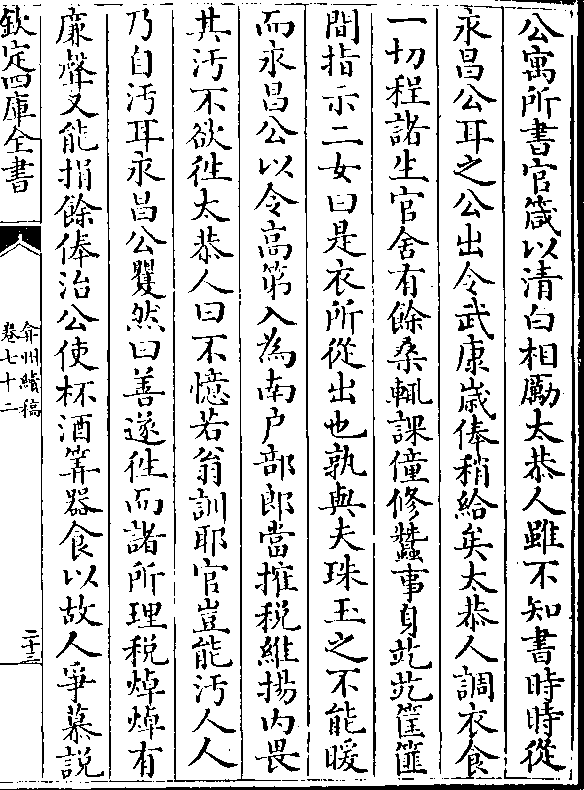 公寓所書官箴以清白相勵太恭人雖不知書時時從
永昌公耳之公出令武康嵗俸稍給矣太恭人調衣食
一切程諸生官舍有餘桑輒課僮修蠶事身矻矻筐篚
間指示二女曰是衣所從出也孰與夫珠玉之不能暖
而永昌公以令高第入為南户部郎當搉税維揚内畏
其汚不欲徃太恭人曰不憶若翁訓耶官豈能汚人人
乃自汚耳永昌公矍然曰善遂徃而諸所理税焯焯有
亷聲又能捐餘俸治公使杯酒筭器食以故人爭慕説
欽定四庫全書
弇州續稿
卷七十二
二十三